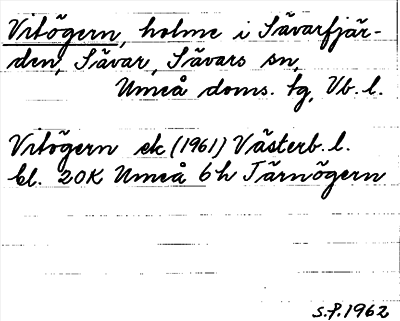 Vitögern, holme i Sävarfjär-
den, Sävar, Sävars sn,
Umeå doms. tg, Vb. l.
Vitögern ek (1961) Västerb. l.
bl. 20K Umeå 6h Tärnögern
s.f. 1962